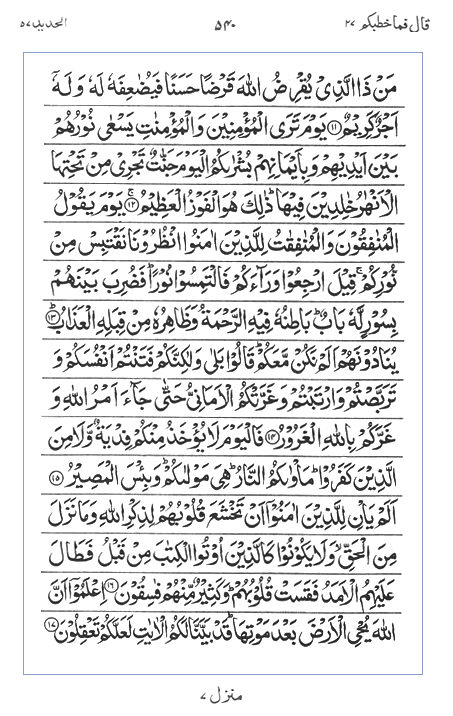 قال فما خطبكم ٢٧ ۵۴۰ الحديد ٥٧
مَنْ ذَا الَّذِىْ يُقْرِضُ اللّٰهَ قَرْضًا حَسَنًا فَيُضٰعِفَهٗ لَهٗ وَ لَهٗۤ
اَجْرٌ كَرِيْمٌۚ‏ ﴿۱۱﴾ يَوْمَ تَرَى الْمُؤْمِنِيْنَ وَالْمُؤْمِنٰتِ يَسْعٰى نُوْرُهُمْ
بَيْنَ اَيْدِيْهِمْ وَبِاَيْمَانِهِمْ بُشْرٰٮكُمُ الْيَوْمَ جَنّٰتٌ تَجْرِىْ مِنْ تَحْتِهَا
الْاَنْهٰرُ خٰلِدِيْنَ فِيْهَا ؕ ذٰلِكَ هُوَ الْفَوْزُ الْعَظِيْمُۚ‏ ﴿۱۲﴾ يَوْمَ يَقُوْلُ
الْمُنٰفِقُوْنَ وَالْمُنٰفِقٰتُ لِلَّذِيْنَ اٰمَنُوا انْظُرُوْنَا نَقْتَبِسْ مِنْ
نُّوْرِكُمْ ۚ قِيْلَ ارْجِعُوْا وَرَآءَكُمْ فَالْتَمِسُوْا نُوْرًا ؕ فَضُرِبَ بَيْنَهُمْ
بِسُوْرٍ لَّهٗ بَابٌ ؕ بَاطِنُهٗ فِيْهِ الرَّحْمَةُ وَظَاهِرُهٗ مِنْ قِبَلِهِ الْعَذَابُؕ‏ ﴿۱۳﴾
يُنَادُوْنَهُمْ اَلَمْ نَكُنْ مَّعَكُمْ ؕ قَالُوْا بَلٰى وَلٰكِنَّكُمْ فَتَنْتُمْ اَنْفُسَكُمْ وَ
تَرَبَّصْتُمْ وَارْتَبْتُمْ وَغَرَّتْكُمُ الْاَمَانِىُّ حَتّٰى جَآءَ اَمْرُ اللّٰهِ وَ
غَرَّكُمْ بِاللّٰهِ الْغَرُوْرُ‏ ﴿۱۴﴾ فَالْيَوْمَ لَا يُؤْخَذُ مِنْكُمْ فِدْيَةٌ وَّلَا مِنَ
الَّذِيْنَ كَفَرُوْا ؕ مَاْوٰٮكُمُ النَّارُ ؕ هِىَ مَوْلٰٮكُمْ ؕ وَبِئْسَ الْمَصِيْرُ‏ ﴿۱۵﴾
اَلَمْ يَاْنِ لِلَّذِيْنَ اٰمَنُوْۤا اَنْ تَخْشَعَ قُلُوْبُهُمْ لِذِكْرِ اللّٰهِ وَمَا نَزَلَ
مِنَ الْحَقِّ ۙ وَلَا يَكُوْنُوْا كَالَّذِيْنَ اُوْتُوا الْكِتٰبَ مِنْ قَبْلُ فَطَالَ
عَلَيْهِمُ الْاَمَدُ فَقَسَتْ قُلُوْبُهُمْ ؕ وَكَثِيْرٌ مِّنْهُمْ فٰسِقُوْنَ‏ ﴿۱۶﴾ اِعْلَمُوْۤا اَنَّ
اللّٰهَ يُحْىِ الْاَرْضَ بَعْدَ مَوْتِهَا ؕ قَدْ بَيَّنَّا لَكُمُ الْاٰيٰتِ لَعَلَّكُمْ تَعْقِلُوْنَ‏ ﴿۱۷﴾
منزل ٧